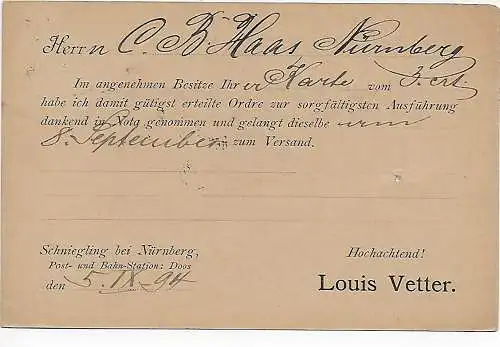 Herrn C. B. Haas Nürnberg
Im angenehmen Besitze Ihrer Karte vom 3. crt.
habe ich damit gütigst erteilte Ordre zur sorgfältigsten Ausführung
dankend in Nota genommen und gelangt dieselbe um
8. September zum Versand.
Schniegling bei Nürnberg,
Hochachtend!
Post- und Bahn-Station: Doos
den 5. IX. 94
Louis Vetter.